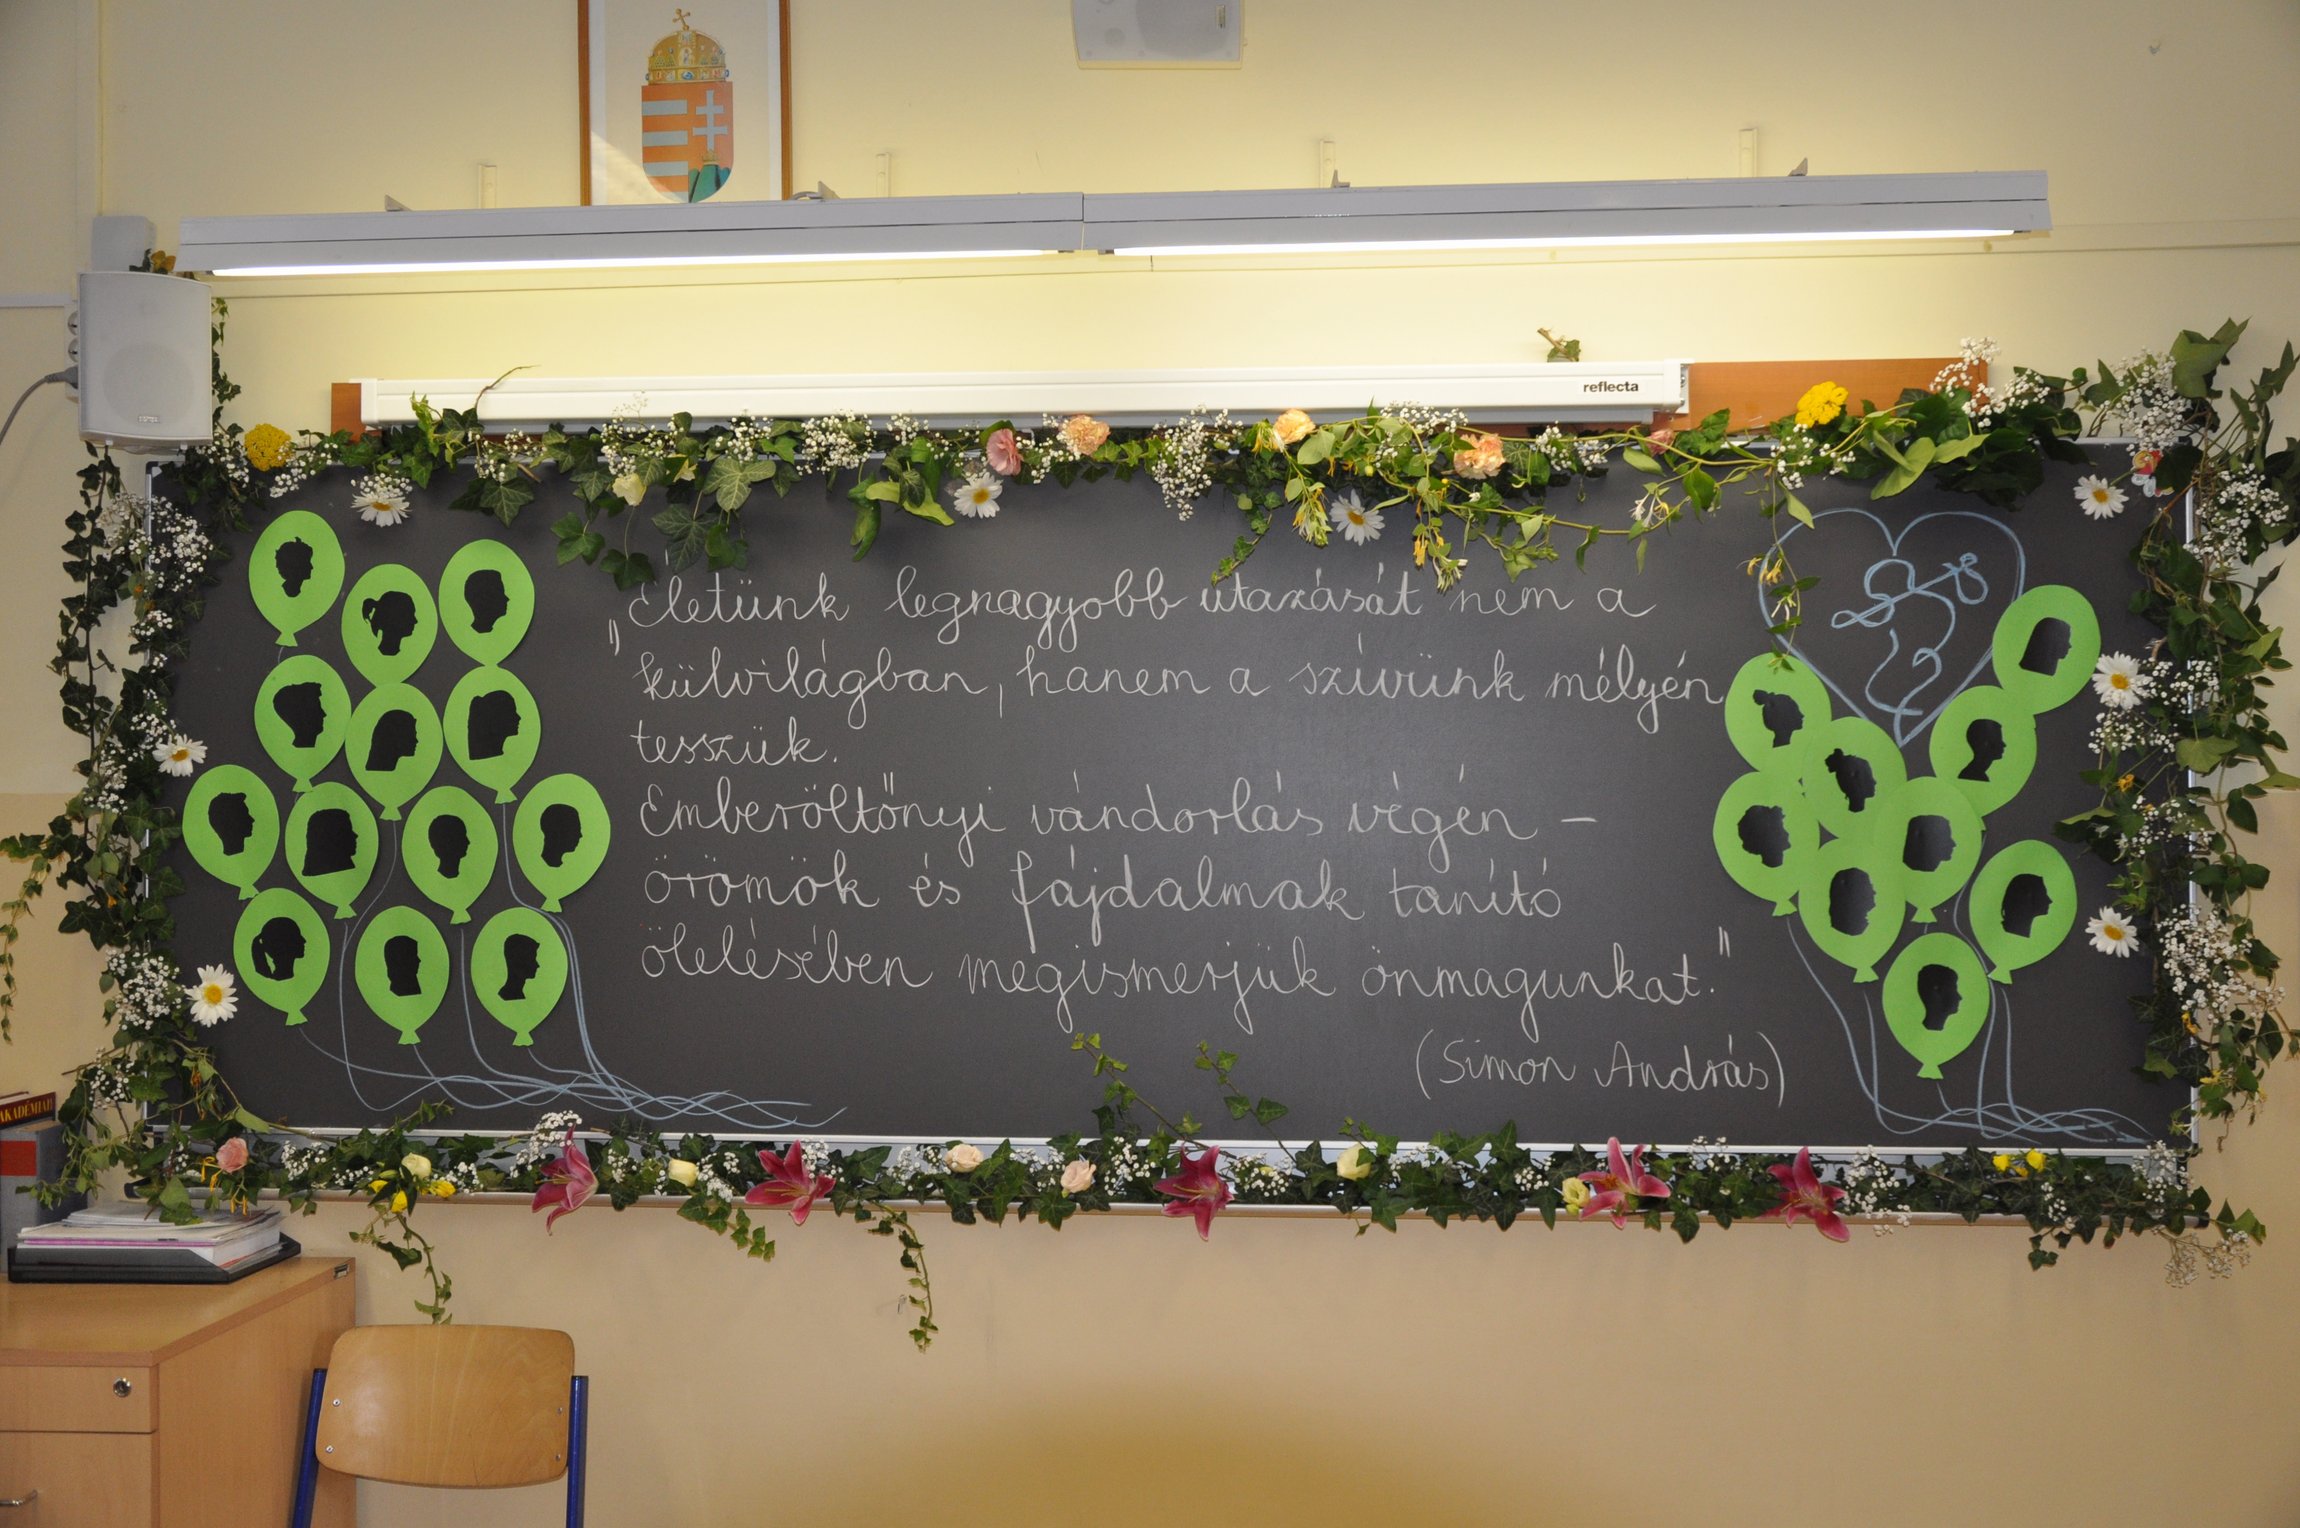 reflecta
„Életünk legnagyobb utazását nem a
külvilágban, hanem a szívünk mélyén
tesszük.
Emberöltőnyi vándorlás végén –
örömök és fájdalmak tanító
ölelésében megismerjük önmagunkat."
(Simon András)
AKADÉMIAI